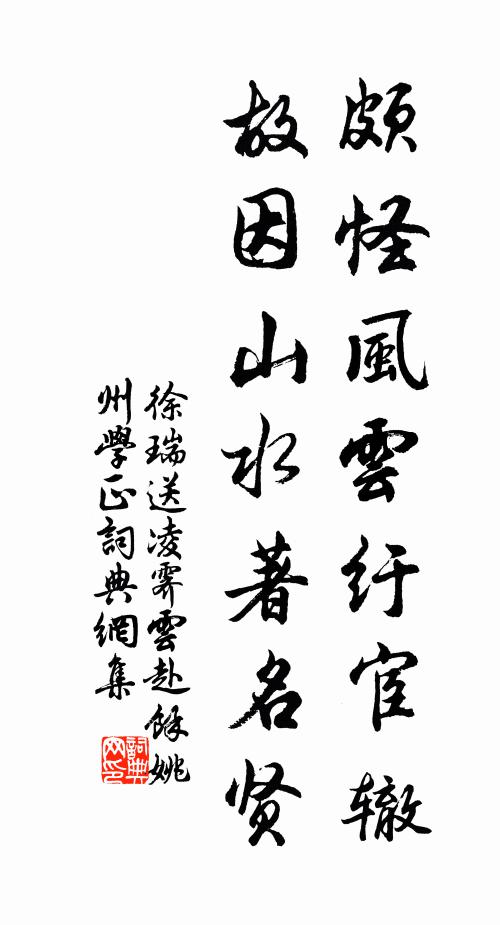 頗怪風雲紆宦辙
故因山水著名贤
徐瑞送凌霽雲赴餘姚
州學正詞典網集
詞典網印